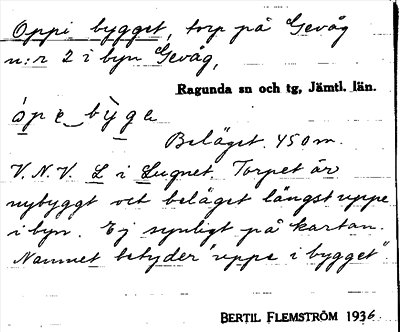 Oppi bygget, torp på Gevåg
n:r 2 i byn Gevåg,
Ragunda sn och tg, Jämtl. län.
ópi_bỳga
Beläget 450 m.
V.N.V. L i Lugnet. Torpet är
nybyggt och beläget längst uppe
i byn. Ej synligt på kartan.
Namnet betyder "uppe i bygget".
BERTIL FLEMSTRÖM 1936.